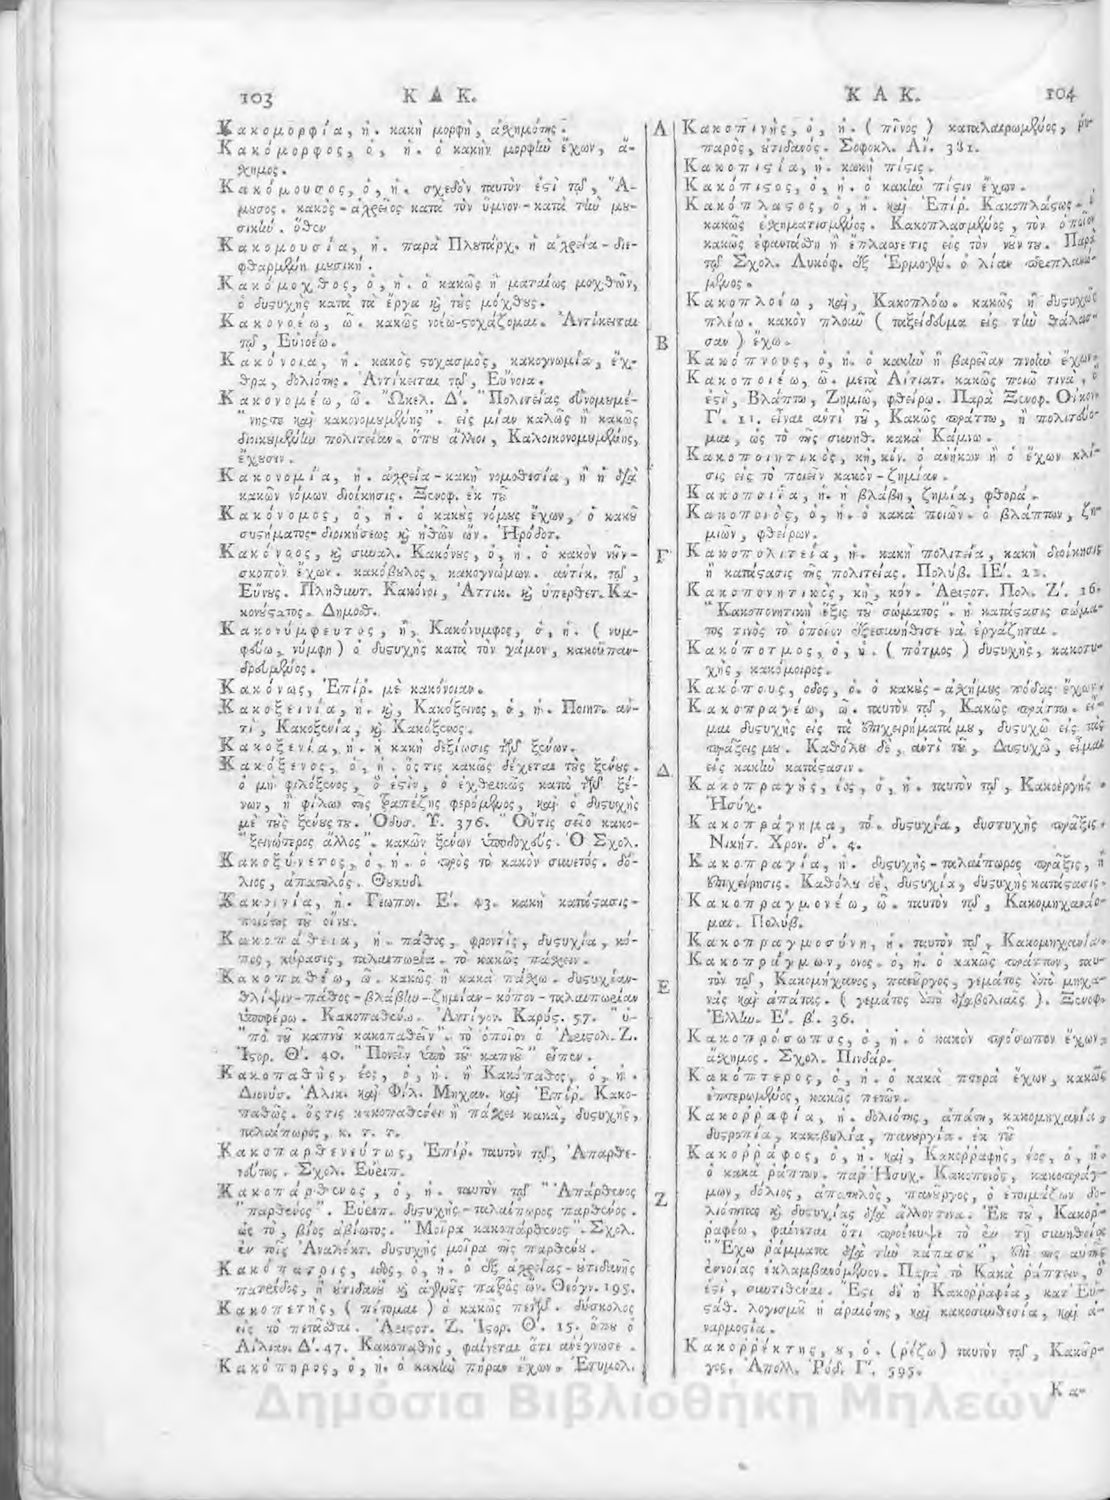 103 Κ Α Κ.
Κακομορφία, ἡ. κακὴ μορφὴ, ἀχημότης.
Κακόμορφος, ὁ, ἡ. ὁ κακὴν μορφὴν ἔχων, ἄ-
χημος.
Κακόμουσος, ὁ, ἡ. σχεδὸν ταυτὸν ἐστὶ τῷ, Ἄ-
μουσος. κακὸς - ἀχρεῖος κατὰ τὸν ὕμνον - κατὰ τὴν μου-
σικήν. ὅθεν
Κακομουσία, ἡ. παρὰ Πλουτάρχ. ἡ ἀχρεία - διε-
φθαρμένη μουσική.
Κακόμοχθος, ὁ, ἡ. ὁ κακῶς ἢ ματαίως μοχθῶν,
ὁ δυστυχὴς κατὰ τὰ ἔργα καὶ τοὺς μόχθους.
Κακονοέω, ῶ. κακῶς νοέω - στοχάζομαι. Ἀντίκειται
τῷ, Εὐνοέω.
Κακόνοια, ἡ. κακὸς στοχασμὸς, κακογνωμία, ἔχ-
θρα, δολιότης. Ἀντίκειται τῷ, Εὔνοια.
Κακονομέω, ῶ. Ὠκελ. Δ'. "Πολιτείας εὐνομουμέ-
"νης τε καὶ κακονομουμένης". εἰς μίαν καλῶς ἢ κακῶς
διοικουμένην πολιτείαν. ὅπου ἄλλοι, Καλοικονομουμένης,
ἔχουσιν.
Κακονομία, ἡ. ἀχρεία - κακὴ νομοθεσία, ἢ ἡ διὰ
κακῶν νόμων διοίκησις. Ξενοφ. ἐκ τοῦ
Κακόνομος, ὁ, ἡ. ὁ κακοὺς νόμους ἔχων, ὁ κακοῦ
συστήματος - διοικήσεως καὶ ἠθῶν ὤν. Ἡρόδοτ.
Κακόνοος, καὶ συναλ. Κακόνους, ὁ, ἡ. ὁ κακὸν νοῦν -
σκοπὸν ἔχων. κακόβουλος, κακογνώμων. ἀντίκ. τῷ,
Εὔνους. Πληθυντ. Κακόνοι, Ἀττικ. καὶ ὑπερθετ. Κα-
κονούστατος. Δημοσθ.
Κακονύμφευτος, ἢ, Κακόνυμφος, ὁ, ἡ. ( νυμ-
φεύω, νύμφη ) ὁ δυστυχὴς κατὰ τὸν γάμον, κακοϋπαν-
δρευμένος.
Κακόνως, Ἐπίρ. μὲ κακόνοιαν.
Κακοξεινία, ἡ. καὶ, Κακόξεινος, ὁ, ἡ. Ποιητ. ἀν-
τὶ, Κακοξενία, καὶ Κακόξενος.
Κακοξενία, ἡ. ἡ κακὴ δεξίωσις τῶν ξένων.
Κακόξενος, ὁ, ἡ. ὅστις κακῶς δέχεται τοὺς ξένους.
ὁ μὴ φιλόξενος, ὅ ἐστιν, ὁ ἐχθρικῶς κατὰ τῶν ξέ-
νων, ἢ φίλων τῆς τραπέζης φερόμενος, καὶ ὁ δυστυχὴς
μὲ τοὺς ξένους του. Ὀδυσ. Υ. 376. "Οὔτις σεῖο κακο-
"ξεινώτερος ἄλλος". κακῶν ξένων ὑποδοχεύς. Ὁ Σχολ.
Κακοξύνετος, ὁ, ἡ. ὁ πρὸς τὸ κακὸν συνετός. δό-
λιος, ἀπατηλός. Θουκυδ.
Κακοινία, ἡ. Γεωπον. Ε'. 43. κακὴ κατάστασις -
ποιότης τοῦ οἴνου.
Κακοπάθεια, ἡ. πάθος, φροντὶς, δυστυχία, κό-
πος, κούρασις, ταλαιπωρία. τὸ κακῶς πάσχειν.
Κακοπαθέω, ῶ. κακῶς ἢ κακὰ πάσχω. δυστυχίαν -
θλίψιν - πάθος - βλάβην - ζημίαν - κόπον - ταλαιπωρίαν
ὑποφέρω. Κακοπαθεύω. Ἀντίγον. Καρύς. 57. "ὑ-
"πὸ τοῦ καπνοῦ κακοπαθεῖν". τὸ ὁποῖον ὁ Ἀριστοτ. Ζ.
Ἱστορ. Θ'. 40. "Πονεῖν ὑπὸ τοῦ καπνοῦ" εἶπεν.
Κακοπαθὴς, έος, ὁ, ἡ. ἢ Κακόπαθος, ὁ, ἡ.
Διονύσ. Ἁλικ. καὶ Φίλ. Μηχαν. καὶ Ἐπίρ. Κακο-
παθῶς. ὅστις κακοπαθεύει ἢ πάσχει κακὰ, δυστυχὴς,
ταλαίπωρος, κ. τ. τ.
Κακοπαρθενεύτως, Ἐπίρ. ταυτὸν τῷ, Ἀπαρθε-
νεύτως. Σχολ. Εὐριπ.
Κακοπάρθενος, ὁ, ἡ. ταυτὸν τῷ "Ἀπάρθενος
"παρθένος". Εὐριπ. δυστυχὴς - ταλαίπωρος παρθένος.
ὡς τὸ, βίος ἀβίωτος. "Μοῖρα κακοπάρθενος". Σχολ.
ἐν τοῖς Ἀναλέκτ. δυστυχὴς μοῖρα τῆς παρθένου.
Κακόπατρις, ιδος, ὁ, ἡ. ὁ ἐξ ἀχρείας - οὐτιδανῆς
πατρίδος, ἢ οὐτιδανοῦ καὶ ἀσήμου πατρὸς ὤν. Θεόγν. 195.
Κακοπετὴς, ( πέτομαι ) ὁ κακῶς πετῶν. δύσκολος
εἰς τὸ πετᾶσθαι. Ἀριστοτ. Ζ. Ἱστορ. Θ'. 15. ὅπου ὁ
Αἰλιαν. Δ'. 47. Κακοπαθὴς, φαίνεται ὅτι ἀνέγνωσε.
Κακόπηρος, ὁ, ἡ. ὁ κακὴν πήραν ἔχων. Ἐτυμολ.
Α
Β
Γ
Δ
Ε
Ζ
Κ Α Κ. 104
Κακοπινὴς, ὁ, ἡ. ( πῖνος ) καταλερωμένος, ῥυ-
παρὸς, οὐτιδανός. Σοφοκλ. Αἴ. 381.
Κακοπιστία, ἡ. κακὴ πίστις.
Κακόπιστος, ὁ, ἡ. ὁ κακὴν πίστιν ἔχων.
Κακόπλαστος, ὁ, ἡ. καὶ Ἐπίρ. Κακοπλάστως. ὁ
κακῶς ἐσχηματισμένος. Κακοπλασμένος, τὸν ὁποῖον
κακῶς ἐφαντάσθη ἢ ἔπλασέ τις εἰς τὸν νοῦν του. Παρὰ
τῷ Σχολ. Λυκόφ. ἐξ Ἑρμογέν. ὁ λίαν
μένος.
Κακοπλοέω, καὶ, Κακοπλόω. κακῶς ἢ δυστυχῶς
πλέω. κακὸν πλοῦν ( ταξείδευμα εἰς τὴν θάλασ-
σαν ) ἔχω.
Κακόπνους, ὁ, ἡ. ὁ κακὴν ἢ βαρεῖαν πνοὴν ἔχων.
Κακοποιέω, ῶ. μετὰ Αἰτιατ. κακῶς ποιῶ τινὰ, ὅ
ἐστὶ, Βλάπτω, Ζημιῶ, φθείρω. Παρὰ Ξενοφ. Οἰκον.
Γ'. 11. εἶναι ἀντὶ τοῦ, Κακῶς πράττω, ἢ πολιτεύο-
μαι, ὡς τὸ τῆς συνηθ. κακὰ Κάμνω.
Κακοποιητικὸς, κὴ, κόν. ὁ ἀνήκων ἢ ὁ ἔχων κλί-
σις εἰς τὸ ποιεῖν κακὸν - ζημίαν.
Κακοποιΐα, ἡ. ἡ βλάβη, ζημία, φθορά.
Κακοποιὸς, ὁ, ἡ. ὁ κακὰ ποιῶν. ὁ βλάπτων, ζη-
μιῶν, φθείρων.
Κακοπολιτεία, ἡ. κακὴ πολιτεία, κακὴ διοίκησις
ἢ κατάστασις τῆς πολιτείας. Πολύβ. ΙΕ'. 21.
Κακοπονητικὸς, κὴ, κόν. Ἀριστοτ. Πολ. Ζ'. 16.
"Κακοπονητικὴ ἕξις τοῦ σώματος". ἡ κατάστασις σώμα-
τος τινὸς τὸ ὁποῖον ἐξεσυνήθισε νὰ ἐργάζηται.
Κακόποτμος, ὁ, ἡ. ( πότμος ) δυστυχὴς, κακοτυ-
χὴς, κακόμοιρος.
Κακόπους, οδος, ὁ. ὁ κακοὺς - ἀχήμους πόδας ἔχων.
Κακοπραγέω, ῶ. ταυτὸν τῷ, Κακῶς πράττω. εἶ-
μαι δυστυχὴς εἰς τὰ ἐπιχειρήματά μου, δυστυχῶ εἰς τὰς
πράξεις μου. Καθόλου δὲ, ἀντὶ τοῦ, Δυστυχῶ, εἶμαι
εἰς κακὴν κατάστασιν.
Κακοπραγὴς, έος, ὁ, ἡ. ταυτὸν τῷ, Κακοεργής.
Ἡσύχ.
Κακοπράγημα, τό. δυστυχία, δυστυχὴς πρᾶξις.
Νικήτ. Χρον. δ'. 4.
Κακοπραγία, ἡ. δυστυχὴς - ταλαίπωρος πρᾶξις, ἢ
ἐπιχείρησις. Καθόλου δὲ, δυστυχία, δυστυχὴς κατάστασις.
Κακοπραγμονέω, ῶ. ταυτὸν τῷ, Κακομηχανάο-
μαι. Πολύβ.
Κακοπραγμοσύνη, ἡ. ταυτὸν τῷ, Κακομηχανία.
Κακοπράγμων, ονος. ὁ, ἡ. ὁ κακῶς πράττων, ταυ-
τὸν τῷ, Κακομήχανος, πανοῦργος, γεμάτος ἀπὸ μηχα-
νὰς καὶ ἀπάτας. ( γεμάτος ἀπὸ διαβολιαὶς ). Ξενοφ.
Ἑλλην. Ε'. β'. 36.
Κακοπρόσωπος, ὁ, ἡ. ὁ κακὸν πρόσωπον ἔχων,
ἄχημος. Σχολ. Πινδάρ.
Κακόπτερος, ὁ, ἡ. ὁ κακὰ πτερὰ ἔχων, κακῶς
ἐπτερωμένος, κακῶς πετῶν.
Κακοῤῥαφία, ἡ. δολιότης, ἀπάτη, κακομηχανία,
δυστροπία, κακοβουλία, πανουργία. ἐκ τοῦ
Κακοῤῥάφος, ὁ, ἡ. καὶ, Κακοῤῥαφὴς, έος, ὁ, ἡ.
ὁ κακὰ ῥάπτων. παρ' Ἡσυχ. Κακοποιὸς, κακοπράγ-
μων, δόλιος, ἀπατηλὸς, πανοῦργος, ὁ ἑτοιμάζων δο-
λιότητας καὶ δυστυχίας διὰ ἄλλον τινα. Ἐκ τοῦ, Κακοῤ-
ῥαφέω, φαίνεται ὅτι προέκυψε τὸ ἐν τῇ συνηθείᾳ
"Ἔχω ῥάμματα διὰ τὴν κάπασου", ἐπὶ τῆς αὐτῆς
ἐννοίας ἐκλαμβανόμενον. Παρὰ τὸ Κακὰ ῥάπτειν, ὅ
ἐστὶ, συντιθέναι. Ἔστι δὲ ἡ Κακοῤῥαφία, κατ' Εὐ-
στάθ. λογισμοῦ ἡ ἀραιότης, καὶ κακοσυνθεσία, καὶ ἀ-
ναρμοστία.
Κακοῤῥέκτης, ου, ὁ. (ῥέζω) ταυτὸν τῷ, Κακοῦρ-
γος. Ἀπολλ. Ῥόδ. Γ'. 595.
Κα-
Δημόσια Βιβλιοθήκη Μηλεών